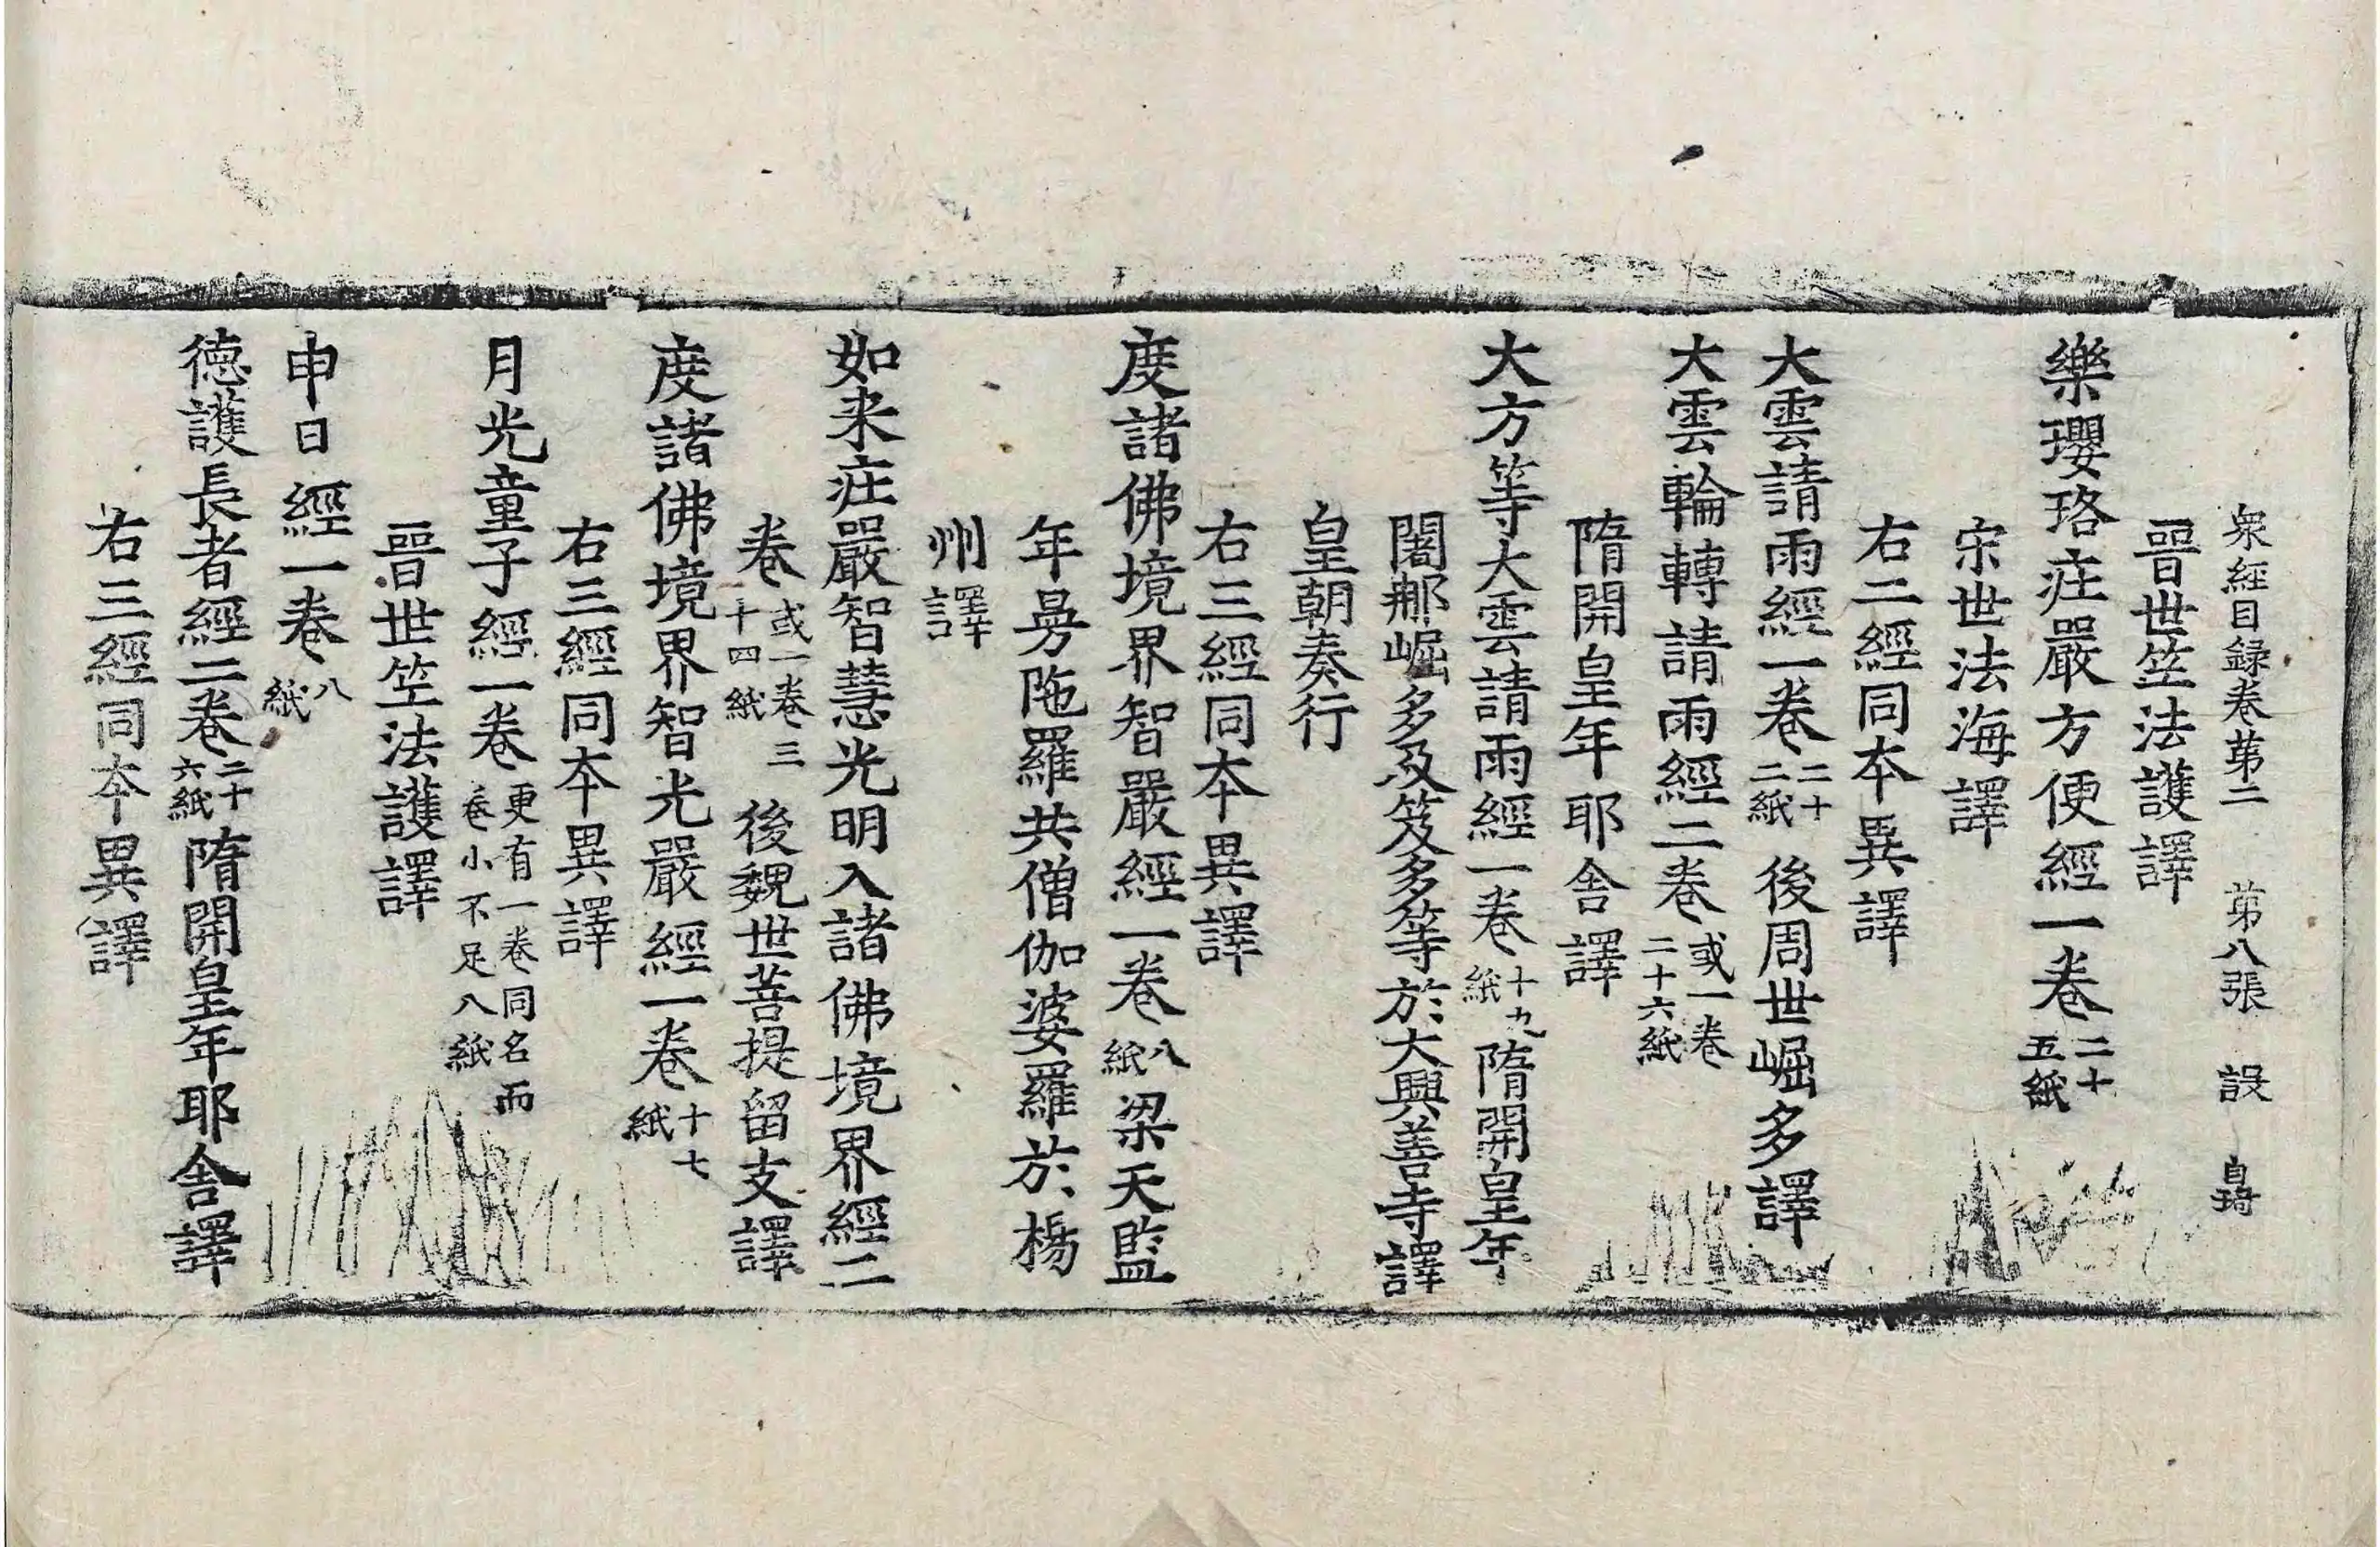 衆經目録卷苐二　苐八張　設　皐琦
晋世笁法護譯
樂瓔珞庄嚴方便經一卷二十五紙
宋世法海譯
右二經同本異譯
大雲請雨經一卷二十二紙　後周世崛多譯
大雲輪轉請雨經二卷或一卷二十六紙
隋開皇年耶舎譯
大方等大雲請雨經一卷十九紙隋開皇年
闍那崛多及笈多等於大興善寺譯
皇朝奏行
右三經同本異譯
度諸佛境界智嚴經一卷八紙梁天監
年曼陁羅共僧伽婆羅於楊
州譯
如来庄嚴智慧光明入諸佛境界經二
卷或一卷三十四紙　後魏世菩提留支譯
度諸佛境界智光嚴經一卷十七紙
右三經同本異譯
月光童子經一卷更有一卷同名而卷小不足八紙
晋世笁法護譯
申日經一卷八紙
徳護長者經二卷二十六紙隋開皇年耶舎譯
右三經同本異譯